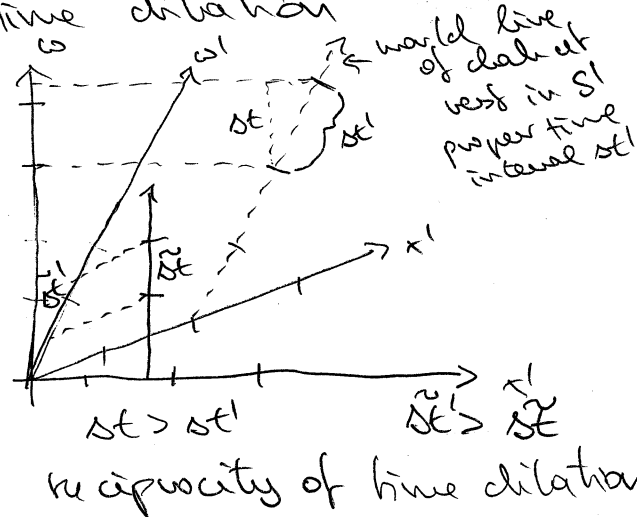 Time dilation
ω
ω'
world line
of clock at
rest in S'
proper time
interval Δt'
Δt
Δt'
x'
Δt̃'
Δt̃
x'
Δt > Δt'
Δt̃' > Δt̃
reciprocity of time dilation